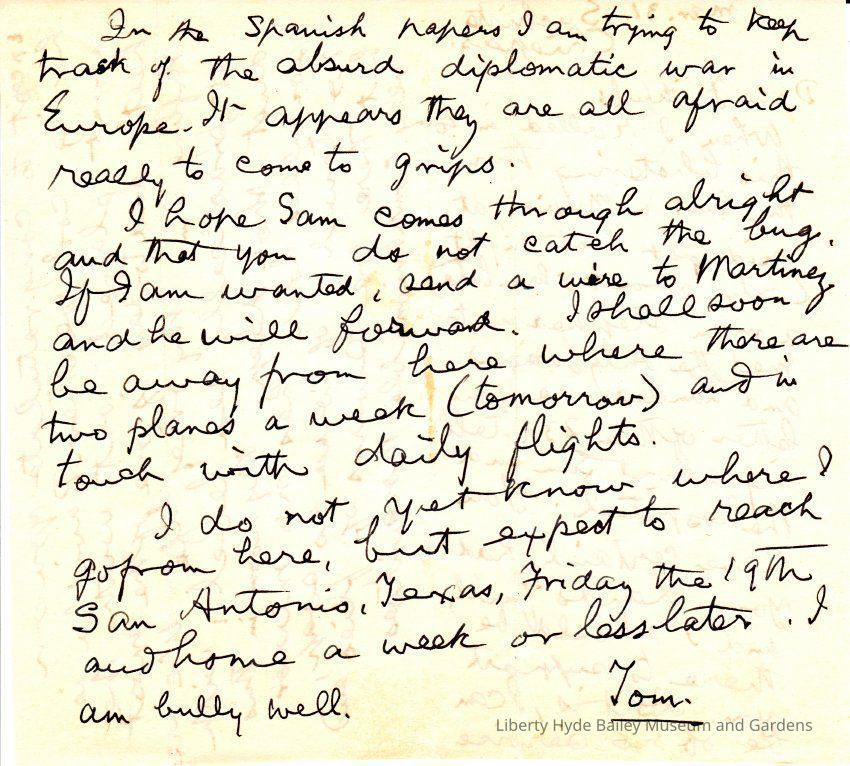 In the Spanish papers I am trying to keep
track of the absurd diplomatic war in
Europe. It appears they are all afraid
really to come to grips.
I hope Sam comes through alright
and that you do not catch the bug.
If I am wanted, send a wire to Martinez
and he will forward. I shall soon
be away from here where there are
two planes a week (tomorrow) and in
touch with daily flights.
I do not yet know where I
go from here, but expect to reach
San Antonio, Texas, Friday the 19th
and home a week or less later. I
am bully well. Tom.
Liberty Hyde Bailey Museum and Gardens